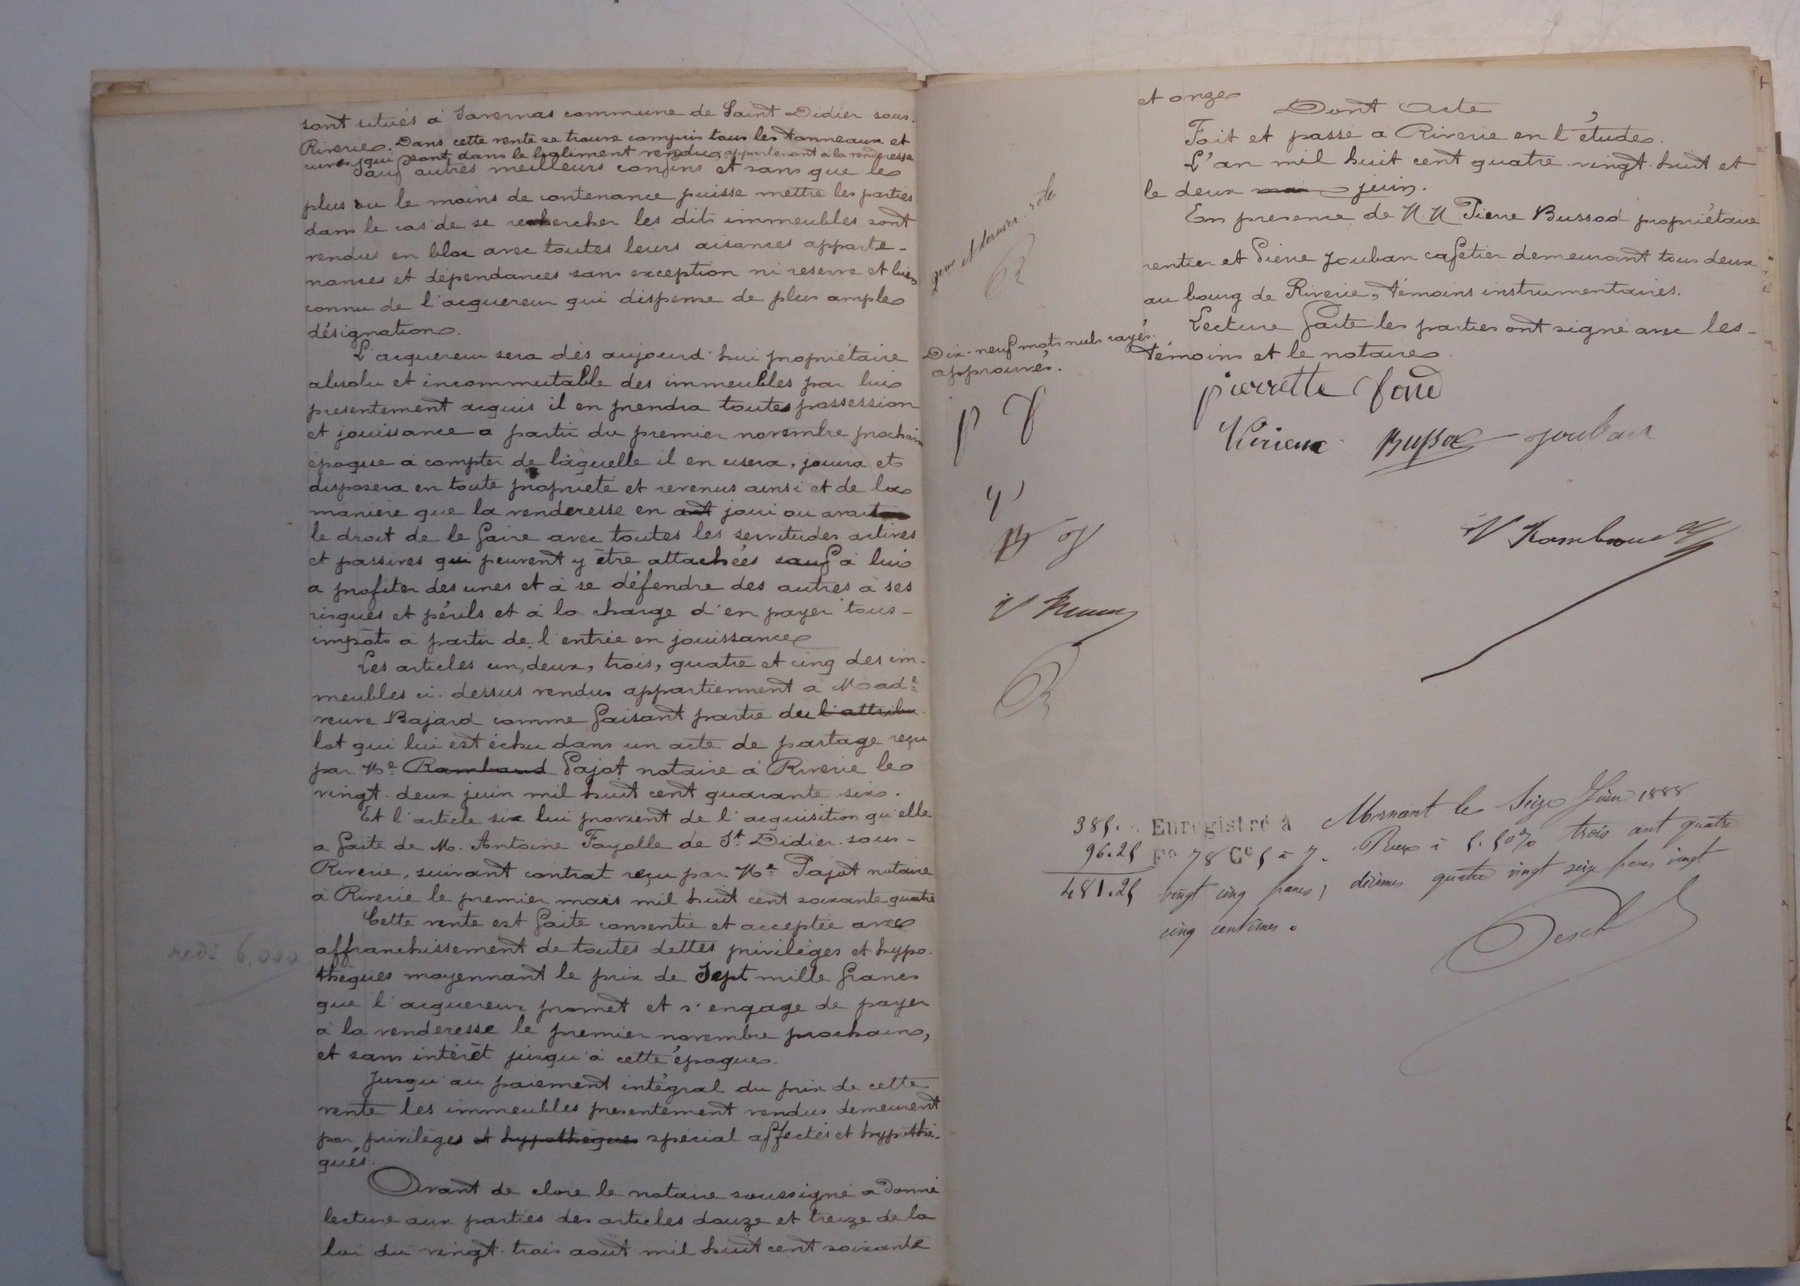 sont situés à Tavernas commune de Saint Didier sous-
Riverie. Dans cette vente se trouve compris tous les tonneaux et
cuves qui sont dans le batiment vendu, appartenant à la venderesse
Sauf autres meilleurs confins et sans que le
plus ou le moins de contenance puisse mettre les parties
dans le cas de se rechercher les dits immeubles sont
vendus en bloc avec toutes leurs aisances apparte-
nances et dépendances sans exception ni reserve et bien
connu de l'acquereur qui dispense de plus ample
désignation.
L'acquereur sera dès aujourd'hui propriétaire
absolu et incommutable des immeubles par lui
presentement acquis il en prendra toutes possession
et jouissance a partir du premier novembre prochain
époque à compter de laquelle il en usera, jouira et
disposera en toute propriété et revenus ainsi et de la
manière que la venderesse en ant joui ou avait
le droit de le faire avec toutes les servitudes actives
et passives qui peuvent y être attachées sauf à lui
a profiter des unes et à se défendre des autres à ses
risques et périls et à la charge d'en payer tous-
impôts a partir de l'entrée en jouissance
Les articles un, deux, trois, quatre et cinq des im-
meubles ci-dessus vendus appartiennent a Made
veuve Bajard comme faisant partie du l'attribu
lot qui lui est échu dans un acte de partage reçu
par Me Rambaud Pajot notaire à Riverie le
vingt-deux juin mil huit cent quarante six.
Et l'article six lui provient de l'acquisition qu'elle
a faite de M. Antoine Fayolle de St Didier-sous-
Riverie, suivant contrat reçu par Me Pajot notaire
à Riverie le premier mars mil huit cent soixante quatre
Cette vente est faite consentie et acceptée avec
affranchissement de toutes dettes privilèges et hypo-
thèques moyennant le prix de Sept mille francs
que l'acquereur promet et s'engage de payer
à la venderesse le premier novembre prochain,
et sans intérêt jusqu'à cette époque.
Jusqu'au paiement intégral du prix de cette
vente les immeubles presentement vendus demeurent
par privilèges et hypothèques spécial affectés et hypothé-
qués.
Avant de clore le notaire soussigné a donné
lecture aux parties des articles douze et treize de la
loi du vingt-trois aout mil huit cent soixante
6.000
et onze
Dont Acte
Fait et passé a Riverie en l'étude.
L'an mil huit cent quatre vingt-huit et
le deux juin.
En presence de M.M. Pierre Bussod propriétaire
rentier et Pierre Jouban cafetier demeurant tous deux
au bourg de Riverie, témoins instrumentaires.
Lecture faite les parties ont signé avec les-
témoins et le notaire
2eme et dernier role
Dix-neuf mots nuls rayés
approuvés.
P F
pierrette fond
Verieux Bussod Jouban
V Rambaud
385.
96.25
481.25
Enregistré à Mornant le Seize Juin 1888
Fo 78 Ce 5 à 7. Reçu à 5.50% trois cent quatre
vingt cinq francs, décimes quatre vingt seize francs vingt
cinq centimes.